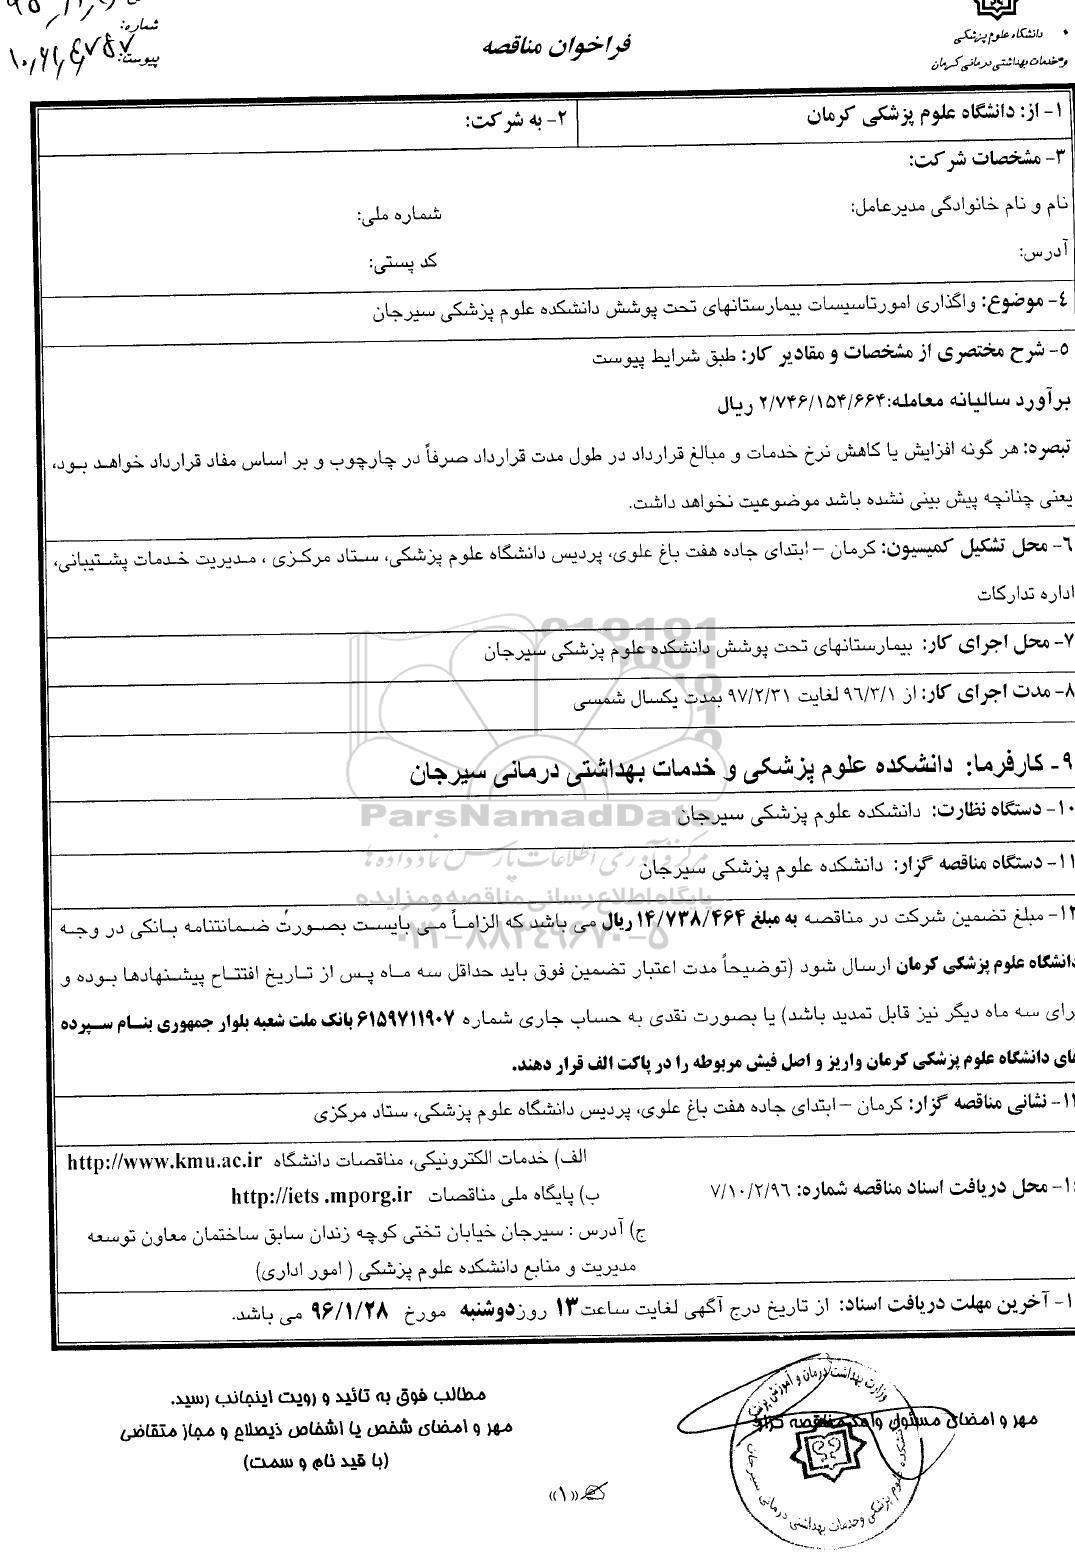 شماره:
پیوست:
فراخوان مناقصه
دانشگاه علوم پزشکی
و خدمات بهداشتی درمانی کرمان
۱- از: دانشگاه علوم پزشکی کرمان
۲- به شرکت:
۳- مشخصات شرکت:
نام و نام خانوادگی مدیرعامل:
شماره ملی:
آدرس:
کد پستی:
۴- موضوع: واگذاری امورتاسیسات بیمارستانهای تحت پوشش دانشکده علوم پزشکی سیرجان
۵- شرح مختصری از مشخصات و مقادیر کار: طبق شرایط پیوست
برآورد سالیانه معامله:۲/۷۴۶/۱۵۴/۶۶۴ ریال
تبصره: هر گونه افزایش یا کاهش نرخ خدمات و مبالغ قرارداد در طول مدت قرارداد صرفاً در چارچوب و بر اساس مفاد قرارداد خواهد بود،
یعنی چنانچه پیش بینی نشده باشد موضوعیت نخواهد داشت.
۶- محل تشکیل کمیسیون: کرمان – ابتدای جاده هفت باغ علوی، پردیس دانشگاه علوم پزشکی، ستاد مرکزی ، مدیریت خدمات پشتیبانی،
اداره تدارکات
۷- محل اجرای کار: بیمارستانهای تحت پوشش دانشکده علوم پزشکی سیرجان
۸- مدت اجرای کار: از ۹۶/۳/۱ لغایت ۹۷/۲/۳۱ بمدت یکسال شمسی
۹- کارفرما: دانشکده علوم پزشکی و خدمات بهداشتی درمانی سیرجان
۱۰- دستگاه نظارت: دانشکده علوم پزشکی سیرجان
ParsNamadData
مرکز فرآوری اطلاعات پارس نماد داده ها
۱۱- دستگاه مناقصه گزار: دانشکده علوم پزشکی سیرجان
پایگاه اطلاع رسانی مناقصه و مزایده
۱۲- مبلغ تضمین شرکت در مناقصه به مبلغ ۱۴/۷۳۸/۴۶۴ ریال می باشد که الزاماً می بایست بصورت ضمانتنامه بانکی در وجه
۰۲۱-۸۸۳۴۹۶۷۰-۵
دانشگاه علوم پزشکی کرمان ارسال شود (توضیحاً مدت اعتبار تضمین فوق باید حداقل سه ماه پس از تاریخ افتتاح پیشنهادها بوده و
برای سه ماه دیگر نیز قابل تمدید باشد) یا بصورت نقدی به حساب جاری شماره ۶۱۵۹۷۱۱۹۰۷ بانک ملت شعبه بلوار جمهوری بنام سپرده
های دانشگاه علوم پزشکی کرمان واریز و اصل فیش مربوطه را در پاکت الف قرار دهند.
۱۳- نشانی مناقصه گزار: کرمان – ابتدای جاده هفت باغ علوی، پردیس دانشگاه علوم پزشکی، ستاد مرکزی
۱۴- محل دریافت اسناد مناقصه شماره: ۷/۱۰/۲/۹۶
الف) خدمات الکترونیکی، مناقصات دانشگاه http://www.kmu.ac.ir
ب) پایگاه ملی مناقصات http://iets .mporg.ir
ج) آدرس : سیرجان خیابان تختی کوچه زندان سابق ساختمان معاون توسعه
مدیریت و منابع دانشکده علوم پزشکی ( امور اداری)
۱- آخرین مهلت دریافت اسناد: از تاریخ درج آگهی لغایت ساعت ۱۳ روز دوشنبه مورخ ۹۶/۱/۲۸ می باشد.
مهر و امضای مسئول واحد مناقصه گزار
مطالب فوق به تائید و رویت اینجانب رسید.
مهر و امضای شخص یا اشخاص ذیصلاح و مجاز متقاضی
(با قید نام و سمت)
وزارت بهداشت درمان و آموزش پزشکی
دانشکده علوم پزشکی و خدمات بهداشتی درمانی سیرجان
«۱»